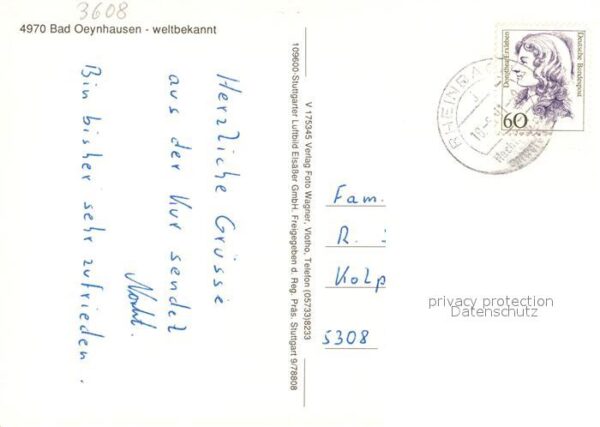 3608
4970 Bad Oeynhausen - weltbekannt
Herzliche Grüsse
aus der Kur sendet
Bin bisher sehr zufrieden.
V 175345 Verlag Foto Wagner, Vlotho, Telefon (05733)8233
109600-Stuttgarter Luftbild Elsäßer GmbH. Freigegeben d. Reg. Präs. Stuttgart 9/78808
Deutsche Bundespost
60
Fam.
R.
Kolp
5308
privacy protection
Datenschutz